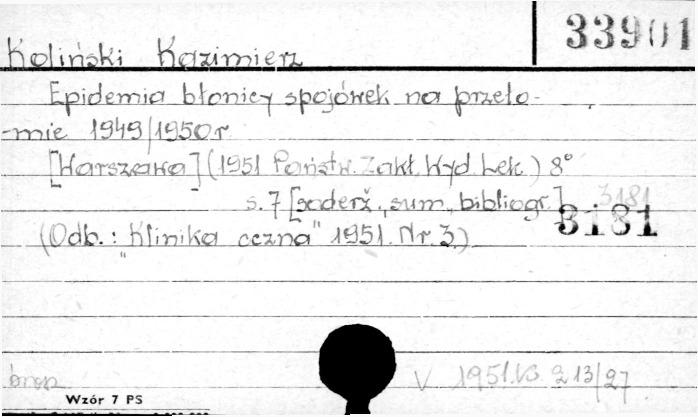 33901
Koliński Kazimierz
Epidemia błonicy spojówek na przeło-
-mie 1949/1950r.
[Warszawa] (1951 Państw. Zakł. Wyd. Lek.) 8°
s. 7 [soderž., sum., bibliogr.] 3181
3181
(Odb.: "Klinika oczna" 1951. Nr. 3.)
brosz V 1951.VS 213/27
Wzór 7 PS